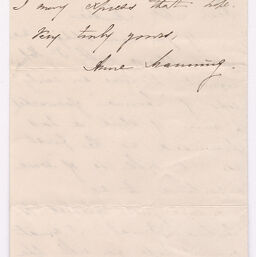 I may express that hope.
Very truly yours,
Anne Manning.